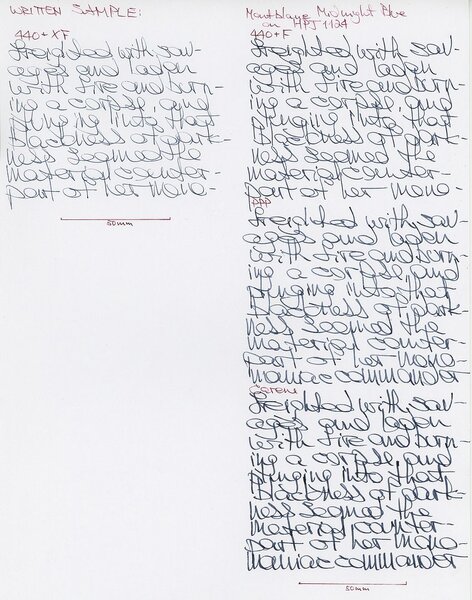 WRITTEN SAMPLE:
440+XF
freighted with sav-
ages and laden
with fire and burn-
ing a corpse, and
plunging into that
blackness of dark-
ness seemed the
material counter-
part of her mono-
50mm
Montblanc Midnight Blue
on HPJ1124
440+F
freighted with sav-
ages and laden
with fire and burn-
ing a corpse, and
plunging into that
blackness of dark-
ness seemed the
material counter-
part of her mono-
freighted with sav-
ages and laden
with fire and burn-
ing a corpse, and
plunging into that
blackness of dark-
ness seemed the
material counter-
part of her mono-
maniac commander
Carene
freighted with sav-
ages and laden
with fire and burn-
ing a corpse, and
plunging into that
blackness of dark-
ness seemed the
material counter-
part of her mono-
maniac commander
50mm